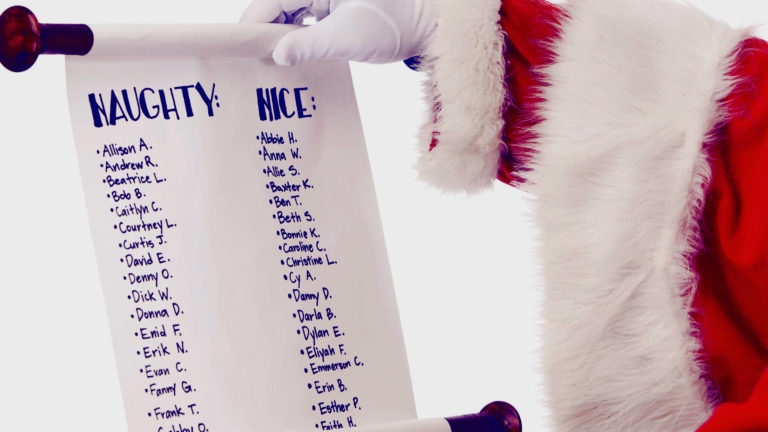 NAUGHTY:
• Allison A.
• Andrew R.
• Beatrice L.
• Bob B.
• Caitlyn C.
• Courtney L.
• Curtis J.
• David E.
• Denny O.
• Dick W.
• Donna D.
• Enid F.
• Erik N.
• Evan C.
• Fanny G.
• Frank T.
NICE:
• Abbie H.
• Anna W.
• Allie S.
• Baxter K.
• Ben T.
• Beth S.
• Bonnie K.
• Caroline C.
• Christine L.
• Cy A.
• Danny D.
• Darla B.
• Dylan E.
• Eliyah F.
• Emmerson C.
• Erin B.
• Esther P.
• Faith H.